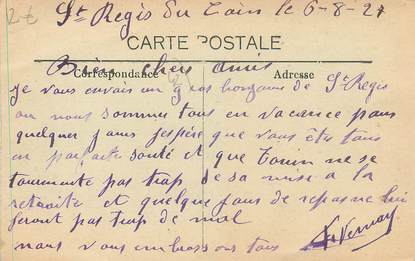 2€
St Regis du Coin le 6-8-27
CARTE POSTALE
Correspondance Adresse
Bien chers amis
je vous envois un gros bonjour de St Regis
ou nous sommes tous en vacance pour
quelque jours jespere que vous êtes tous
en parfaite santé et que Tonin ne se
tourmente pas trop de sa mise a la
retraite et quelque jours de repos ne lui
feront pas trop de mal
nous vous embrassons tous Vernay